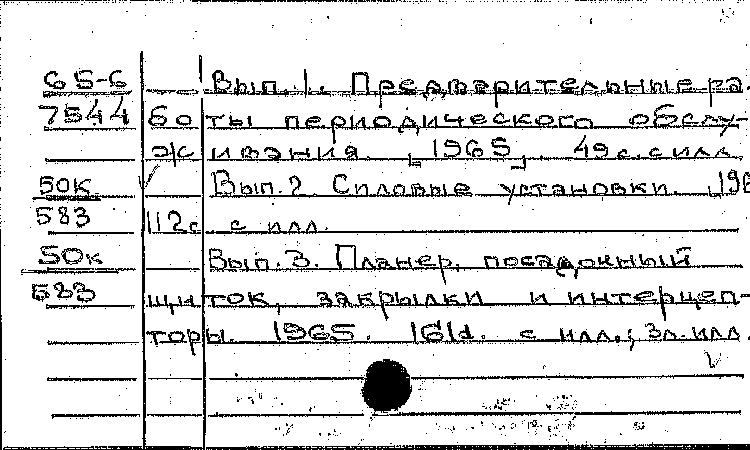 65-6 Вып. 1. Предварительные ра-
7544 боты периодического обслу-
живания. [1965]. 49 с. с илл.
50к Вып. 2. Силовые установки. [196
583 112 с. с илл.
50к Вып. 3. Планер, посадочный
583 щиток, закрылки и интерцеп-
торы. 1965. с илл.; 3 л. илл.